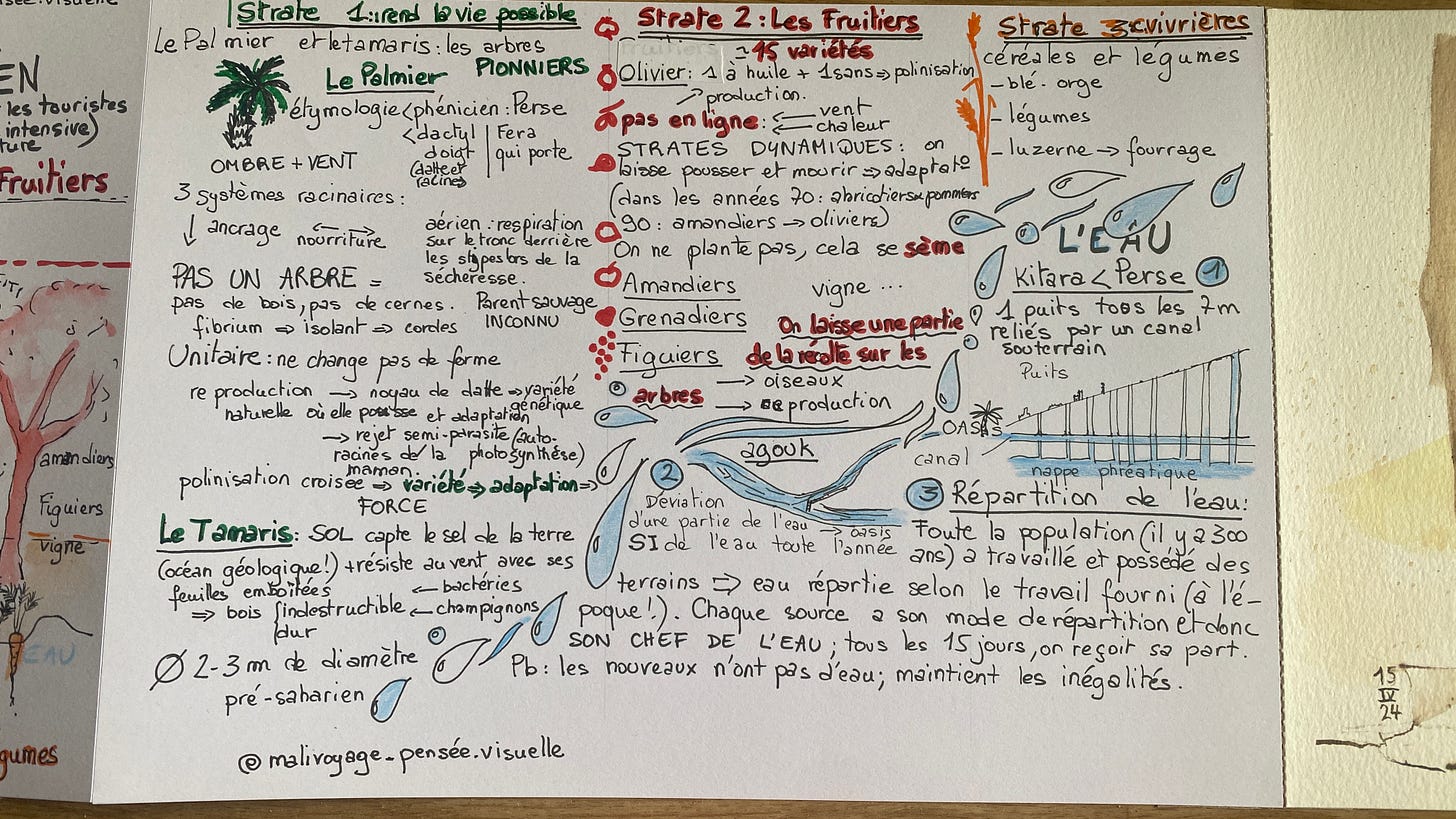 EN
les touristes
intensive)
ture
Fruitiers
amandiers
Figuiers
vigne
EAU
gumes
Strate 1: rend la vie possible
Le Palmier et le tamaris : les arbres
PIONNIERS
Le Palmier
étymologie < phénicien : Perse
< dactyl | Fera
doigt | qui porte
(datte et
racines)
OMBRE + VENT
3 systèmes racinaires :
↓ ancrage
nourriture
aérien : respiration
sur le tronc derrière
les stipes lors de la
sécheresse.
PAS UN ARBRE =
pas de bois, pas de cernes.
fibrium ⇒ isolant ⇒ cordes
Parent sauvage
INCONNU
Unitaire : ne change pas de forme
reproduction → noyau de datte ⇒ variété
génétique
naturelle où elle pousse et adaptation
→ rejet semi-parasite (auto-
racines de la photosynthèse)
maman.
polinisation croisée ⇒ variété ⇒ adaptation ⇒
FORCE
Le Tamaris : SOL capte le sel de la terre
(océan géologique !) + résiste au vent avec ses
feuilles emboîtées
← bactéries
⇒ bois {indestructible ← champignons
dur
Ø 2-3 m de diamètre
pré-saharien
@malivoyage_pensée.visuelle
Strate 2 : Les Fruitiers
fruitiers
~ 15 variétés
Olivier : 1 à huile + 1 sans ⇒ polinisation
↗ production.
pas en ligne : ← vent
← chaleur
STRATES DYNAMIQUES : on
laisse pousser et mourir ⇒ adaptat°
(dans les années 70 : abricotiers x pommiers
90 : amandiers → oliviers)
On ne plante pas, cela se sème
Amandiers
vigne ...
Grenadiers
Figuiers
On laisse une partie
de la récolte sur les
arbres
→ oiseaux
→ production
Strate 3: vivrières
céréales et légumes
- blé - orge
- légumes
- luzerne → fourrage
L'EAU
Kitara < Perse 1
1 puits tous les 7m
reliés par un canal
souterrain
Puits
OASIS
canal
nappe phréatique
agouk
2
Déviation
d'une partie de l'eau → oasis
SI de l'eau toute l'année
3 Répartition de l'eau :
Toute la population (il y a 300
ans) a travaillé et possédé des
terrains ⇒ eau répartie selon le travail fourni (à l'é-
poque !). Chaque source a son mode de répartition et donc
SON CHEF DE L'EAU ; tous les 15 jours, on reçoit sa part.
Pb : les nouveaux n'ont pas d'eau ; maintient les inégalités.
15
IV
24